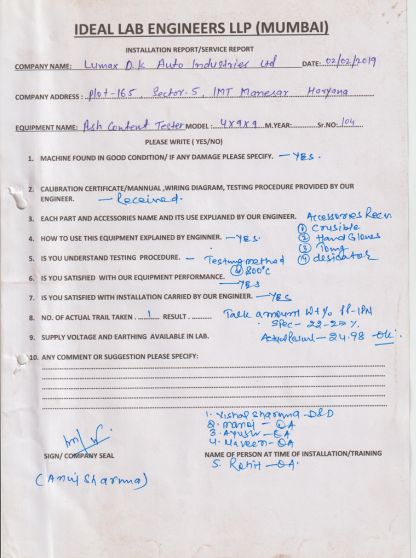 IDEAL LAB ENGINEERS LLP (MUMBAI)
INSTALLATION REPORT/SERVICE REPORT
COMPANY NAME: Lumax D.K Auto Industries Ltd DATE: 02/02/2019
COMPANY ADDRESS : Plot-165 Sector-5, IMT Manesar Haryana
EQUIPMENT NAME: Ash Content Tester MODEL : 4x9x9 M.YEAR: Sr.NO: 104
PLEASE WRITE ( YES/NO)
1. MACHINE FOUND IN GOOD CONDITION/ IF ANY DAMAGE PLEASE SPECIFY. – YES.
2. CALIBRATION CERTIFICATE/MANNUAL ,WIRING DIAGRAM, TESTING PROCEDURE PROVIDED BY OUR
ENGINEER. – Received.
3. EACH PART AND ACCESSORIES NAME AND ITS USE EXPLAINED BY OUR ENGINEER. Accessories Recv
① Crusible
4. HOW TO USE THIS EQUIPMENT EXPLAINED BY ENGINNER. – YES. ② Hand Gloves
③ Tong
5. IS YOU UNDERSTAND TESTING PROCEDURE. – Testing method ④ desicator
@ 800°C
6. IS YOU SATISFIED WITH OUR EQUIPMENT PERFORMANCE.
– YES
7. IS YOU SATISFIED WITH INSTALLATION CARRIED BY OUR ENGINEER. – YES
8. NO. OF ACTUAL TRAIL TAKEN . 1 RESULT Talk amount
Spec-
9. SUPPLY VOLTAGE AND EARTHING AVAILABLE IN LAB. Actual Result – 24.98 OK
10. ANY COMMENT OR SUGGESTION PLEASE SPECIFY:
1. Vishal Sharma – D&D
2. Manoj – QA
3. Ayush – QA
4. Naveen – QA
SIGN/ COMPANY SEAL
NAME OF PERSON AT TIME OF INSTALLATION/TRAINING
5. Rohit – QA.
(Anuj Sharma)